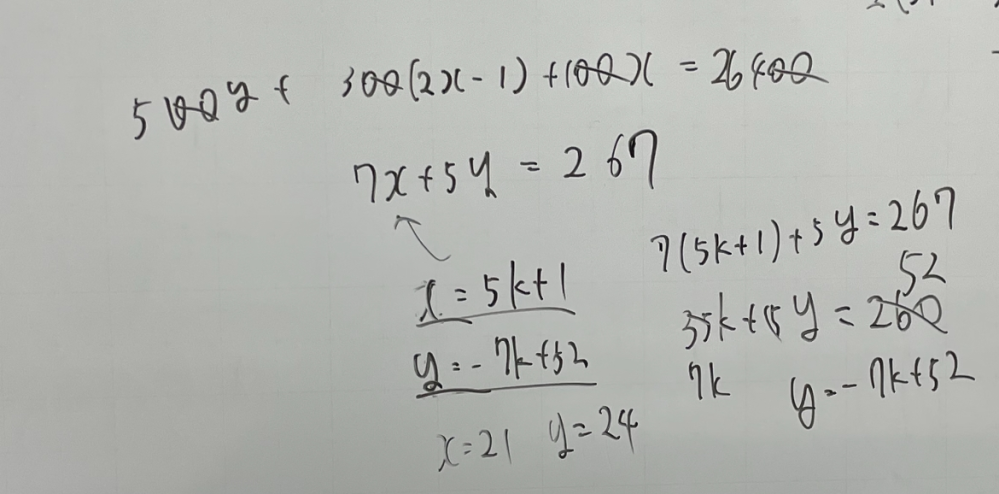 500y + 300(2x-1) + 100x = 26400
7x+5y = 267
x = 5k+1
y = -7k+52
x=21 y=24
7(5k+1)+5y=267
52
35k+5y = 260
7k y=-7k+52